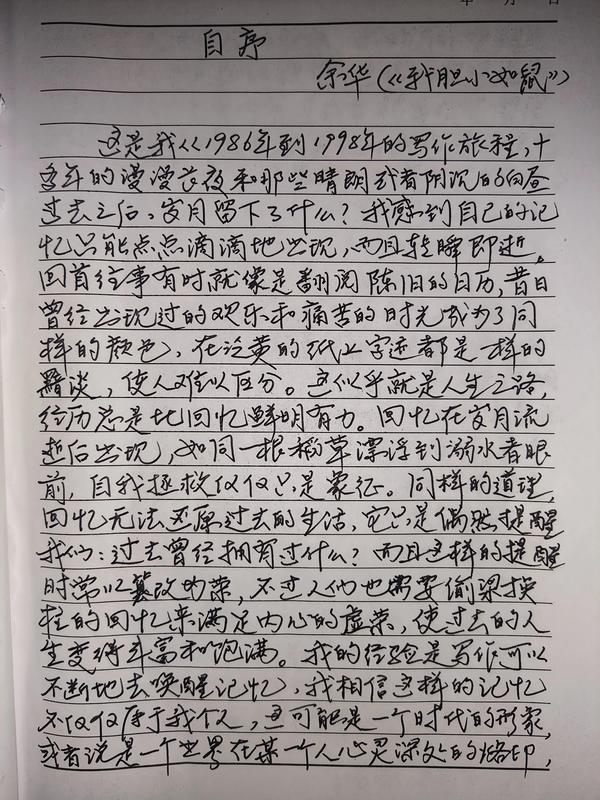 自序
余华(《我胆小如鼠》)
这是我从1986年到1998年的写作旅程,十
多年的漫漫长夜和那些晴朗或者阴沉的白昼
过去之后,岁月留下了什么?我感到自己的记
忆只能点点滴滴地出现,而且转瞬即逝。
回首往事有时就像是翻阅陈旧的日历,昔日
曾经出现过的欢乐和痛苦的时光成为了同
样的颜色,在泛黄的纸上字迹都是一样的
黯淡,使人难以区分。这似乎就是人生之路,
经历总是比回忆鲜明有力。回忆在岁月流
逝后出现,如同一根稻草漂浮到溺水者眼
前,自我拯救仅仅只是象征。同样的道理,
回忆无法还原过去的生活,它只是偶然提醒
我们:过去曾经拥有过什么?而且这样的提醒
时常以篡改为荣,不过人们也需要偷梁换
柱的回忆来满足内心的虚荣,使过去的人
生变得丰富和饱满。我的经验是写作可以
不断地去唤醒记忆,我相信这样的记忆
不仅仅属于我个人,这可能是一个时代的形象,
或者说是一个世界在某一个人心灵深处的烙印,